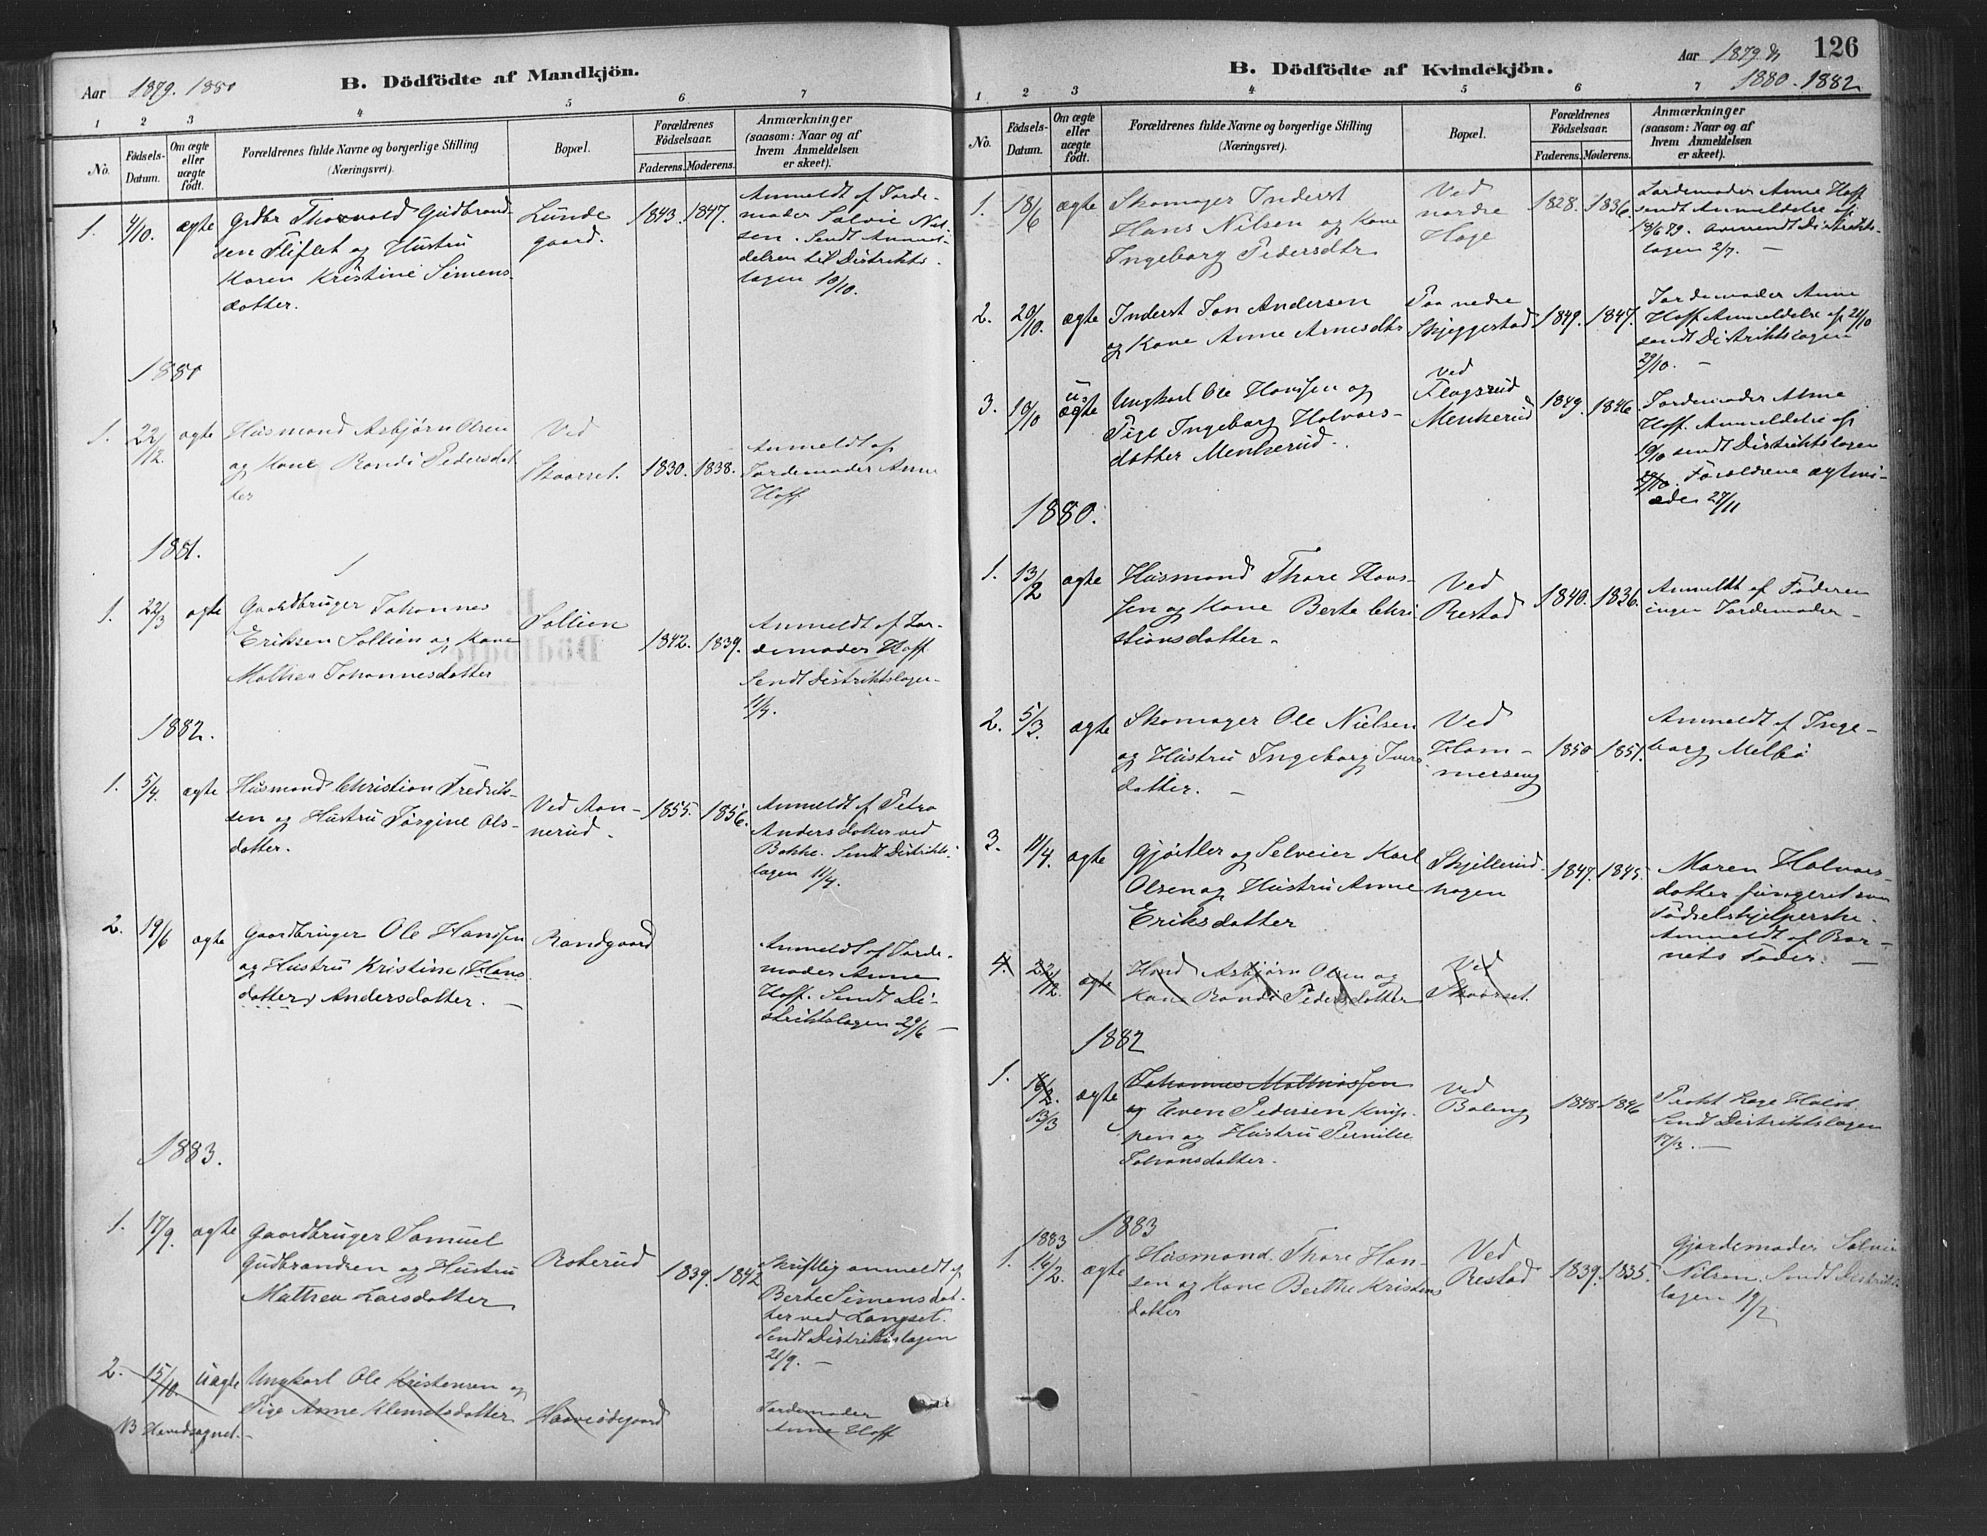 Aar 1879. 1880
B. Dödfödte af Mandkjön.
1 2 3 4 5 6 7
No.
Födsels-
Datum.
Om ægte
eller
uægte
födt.
Forældrenes fulde Navne og borgerlige Stilling
(Næringsvei).
Bopæl.
Forældrenes
Födselsaar.
Faderens. Moderens.
Anmærkninger
(saasom: Naar og af
hvem Anmeldelsen
er skeet).
1. 4/10. ægte
Grdbr Thorvold Gudbrand-
sen Fliflet og Hustru
Karen Kristine Simens-
datter.
Lunde
gaard.
1843. 1847.
Anmeldt af Jorde-
moder Solvie Nil-
sen. Sendt Anmel-
delsen til Distrikts-
lægen 10/10.
1880
1. 22/12. ægte
Husmand Asbjørn Olsen
og Kone Randi Pedersdat
ter
Ved
Skaarset.
1830. 1838.
Anmeldt af
Jordemoder Anne
Hoff
1881.
1. 22/3 ægte
Gaardbruger Johannes
Eriksen Sollien og Kone
Mathea Johannesdatter
Sollien
1842. 1839.
Anmeldt af Jor-
demoder Hoff
Sendt Distriktslægen
11/4.
1882.
1. 5/4. ægte
Husmand Christian Fredrik-
sen og Hustru Jørgine Ols-
datter.
Ved Aan-
nerud.
1855. 1856.
Anmeldt af Petra
Andersdatter ved
Bakke. Sendt Distrikts-
lægen 11/4.
2. 19/6 ægte
Gaardbruger Ole Hanssen
og Hustru Kristine (Hans-
datter) Andersdatter. —
Randgaard
Anmeldt af Jorde-
moder Anne
Hoff. Sendt Di-
striktslægen 29/6 —
1883.
1. 17/9. ægte
Gaardbruger Samuel
Gudbrandsen og Hustru
Mathea Larsdatter
Roterud
1839. 1842
Skriftlig anmeldt af
Berte Simensdat-
ter ved Langset.
Sendt Distriktslægen
21/9. —
2. 15/10. uægte
Ungkarl Ole Kristensen og
Pige Anne Klemetsdatter
Haaviødegaard
Jordemoder
Anne Hoff
NB Hovedsognet. -
126
B. Dödfödte af Kvindekjön.
Aar 1879. &
1880. 1882
1 2 3 4 5 6 7
No.
Födsels-
Datum.
Om ægte
eller
uægte
födt.
Forældrenes fulde Navne og borgerlige Stilling
(Næringsvei).
Bopæl.
Forældrenes
Födselsaar.
Faderens. Moderens.
Anmærkninger
(saasom: Naar og af
hvem Anmeldelsen
er skeet).
1. 18/6 ægte
Skomager Inderst
Hans Nilsen og Kone
Ingeborg Pedersdtr
Ved
nordre
Hage
1828. 1836.
Jordemoder Anne Hoff
sendt Anmeldelse af
18/6 79. Anmeldt Distrikts-
lægen 2/7. —
2. 20/10. ægte
Inderst Jon Andersen
og Kone Anne Arnesdtr
Paa nedre
Skjeggestad
1849. 1847.
Jordemoder Anne
Hoff Anmeldelse af 21/10
sendt Distriktslægen
29/10. —
3. 10/10 u-
ægte
Ungkarl Ole Hanssen og
Pige Ingeborg Halvors-
datter Menkerud.
Ved
Flagsrud
Menkerud
1849. 1846.
Jordemoder Anne
Hoff. Anmeldelse af
19/10 sendt Distriktslægen
29/10. Forældrene ægtevi-
ede 27/11
1880.
1. 13/2 ægte
Husmand Thore Hans-
sen og Kone Berte Chri
stiansdatter -
Ved
Restad
1840. 1836.
Anmeldt af Faderen
ingen Jordemoder -
2. 5/3. ægte
Skomager Ole Nielsen
og Hustru Ingeborg Ivers-
datter. -
Ved
Ham-
merseng
1850 1851.
Anmeldt af Inge-
borg Melbø
3. 11/4. ægte
Gjørtler og Selveier Karl
Olsen og Hustru Anne
Eriksdatter
Skjellerud
hagen
1847. 1845.
Maren Halvors-
datter fungeret som
Födselshjelperske.
Anmeldt af Bar-
nets Fader. —
4. 22/12. ægte
Hmd Asbjørn Olsen og
Kone Randi Pedersdatter
Ved
Skaarset.
1882
1. 16/2.
13/3
ægte
Johannes Mathiassen
og Even Pedersen Knip-
pen og Hustru Pernille
Johansdatter.
Ved
Baleng
1848 1846
Sendt Distriktslægen
17/3. —
1883
1883
1. 16/2. ægte
Husmand Thore Han-
sen og Kone Berthe Kristens
datter
Ved
Restad
1839. 1835.
Gjordemoder Solvie
Nilsen. Sendt Distrikts-
lægen 19/2